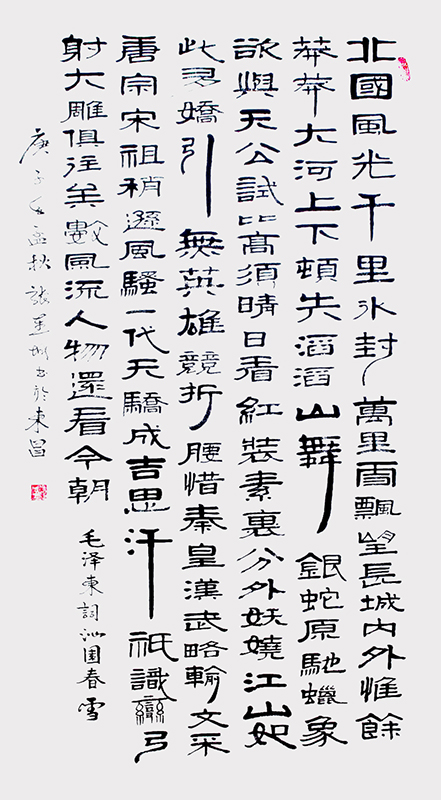 北國風光千里氷封萬里雪飄望長城内外惟餘
莽莽大河上下頓失滔滔山舞銀蛇原馳蠟象
欲與天公試比高須晴日看紅裝素裹分外妖嬈江山如
此多嬌引無英雄競折腰惜秦皇漢武略輸文采
唐宗宋祖稍遜風騷一代天驕成吉思汗祇識彎弓
射大雕俱往矣數風流人物還看今朝
毛泽東詞沁园春雪
庚子年孟秋張书於東昌